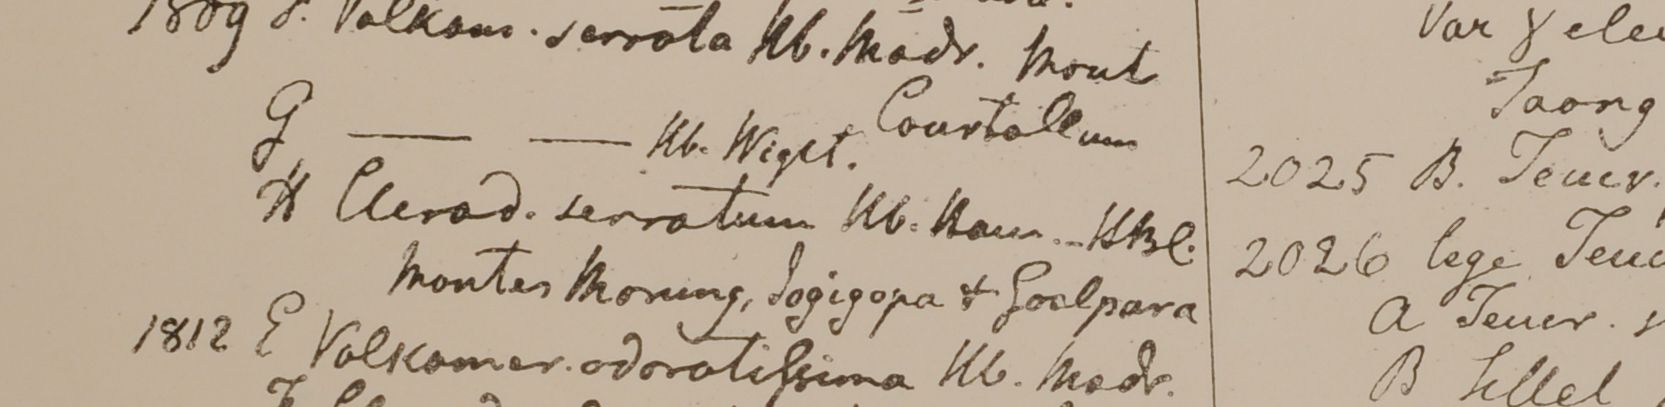 1809 F. Volkam. serrata Hb. Madr. Mont
Courtallum
G — — Hb. Wight.
H Clerod. serratum Hb. Ham. - HBC.
Montes Morung, Jogigopa & Goalpara
1812 E Volkamer. odoratissima Hb. Madr.
Var γ
Taong
2025 B. Teucr.
2026 lege Teuc
A Teucr.
B